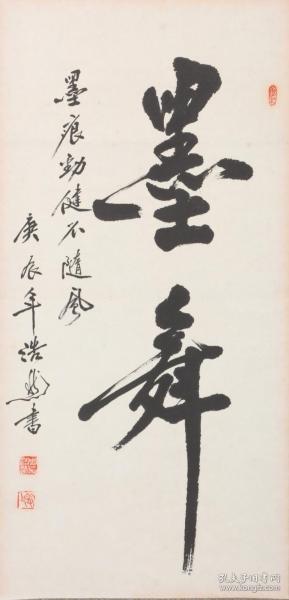 墨舞
墨痕劲健不随风
庚辰年浩然书
孔夫子旧书网
www.kongfz.com